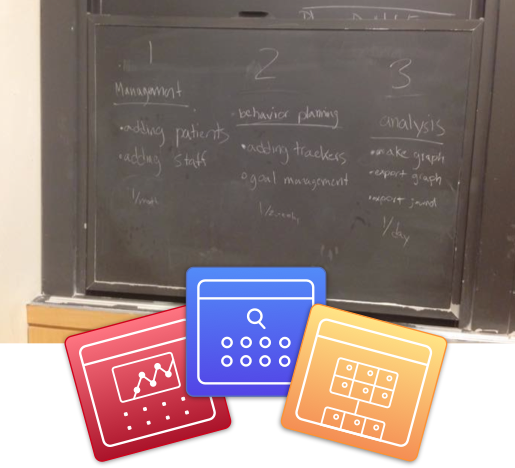 1
Management
•adding patients
•adding staff
2
-behavior planning
•adding trackers
•goal management
3
analysis
•make graph
•export graph
•export
1/day